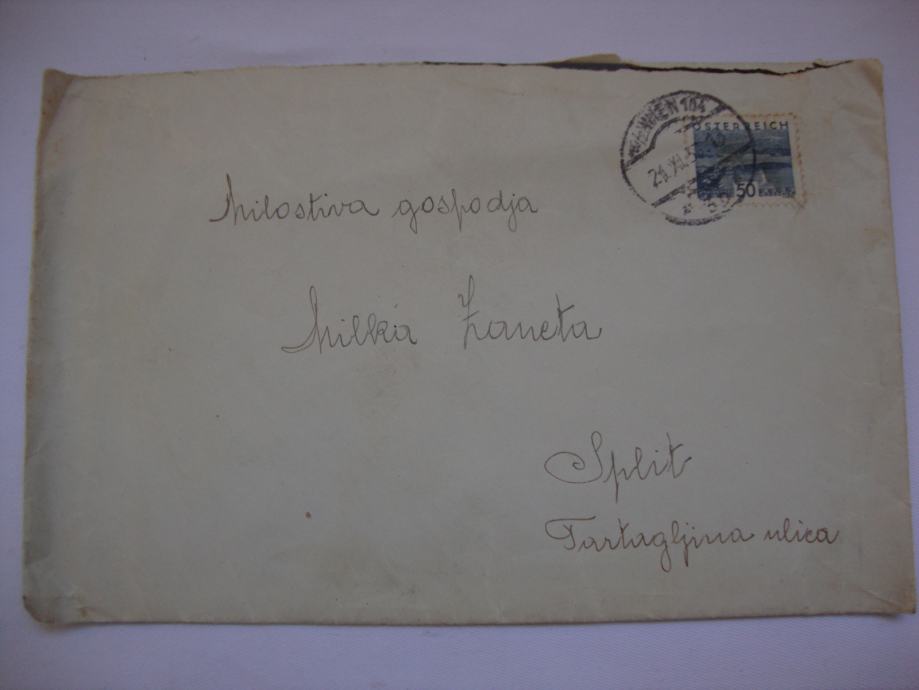 WIEN 104
ÖSTERREICH
50
Milostiva gospodja
Milka Zaneta
Split
Tartagljina ulica